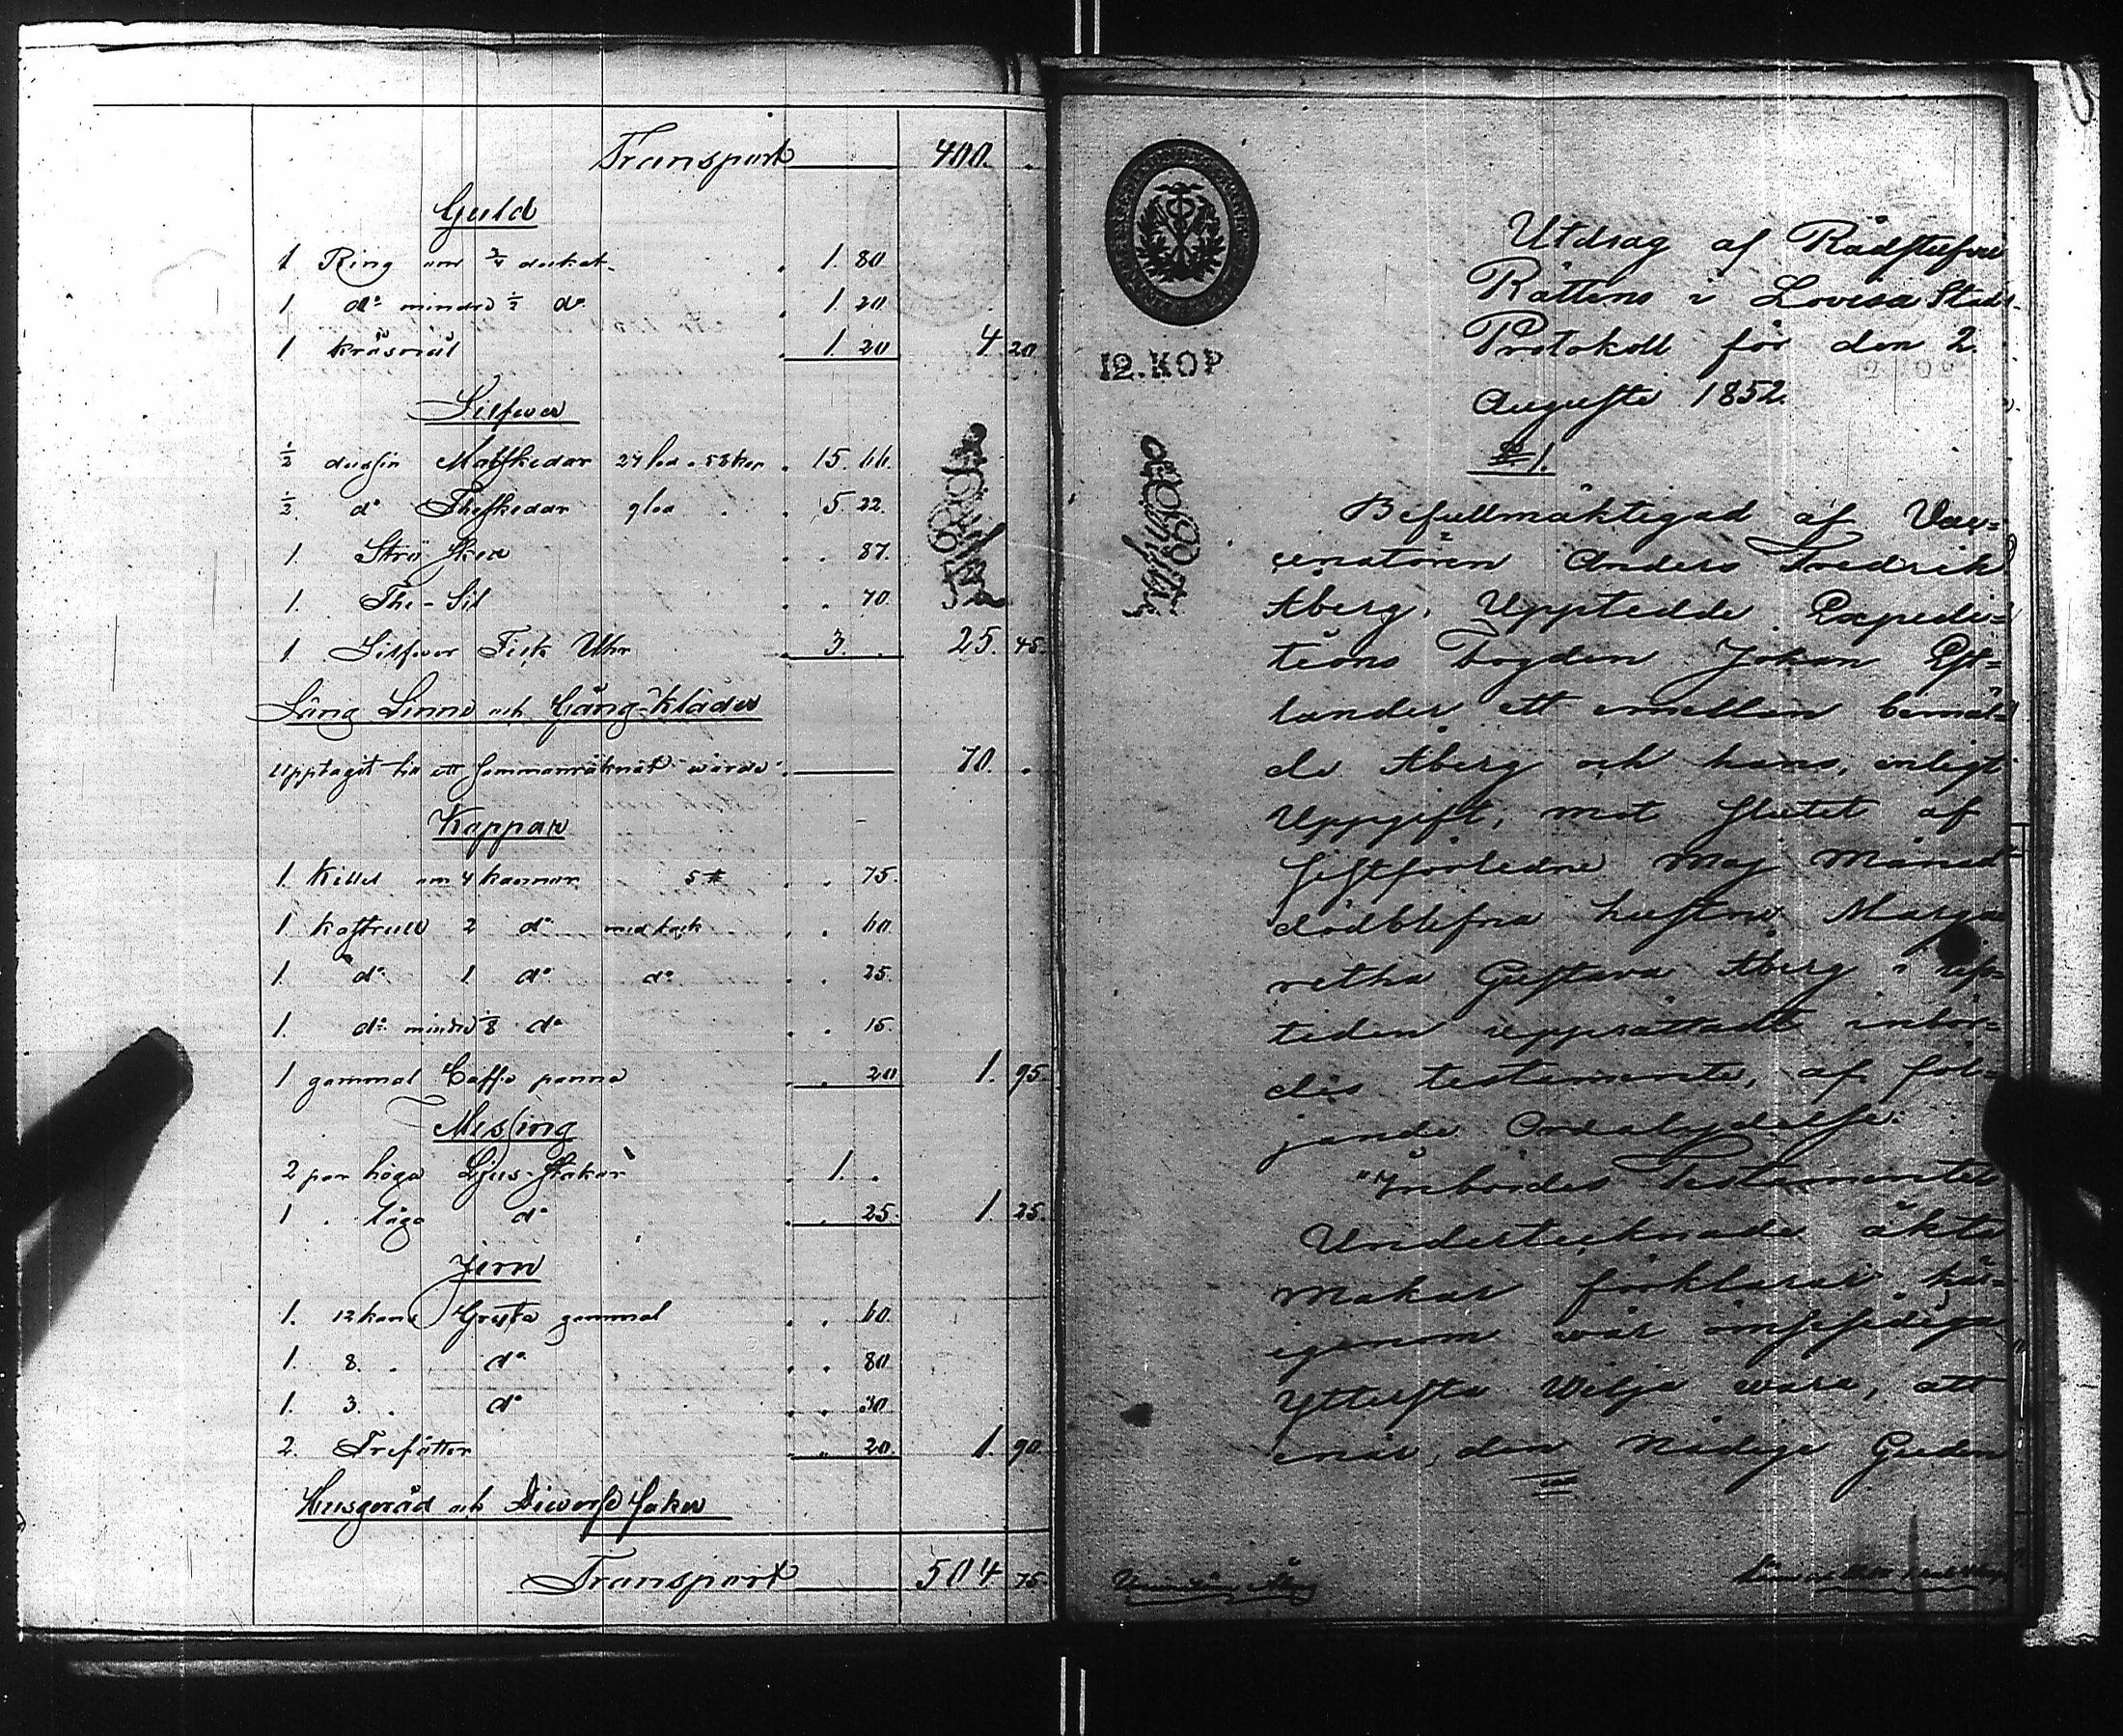 Transport 400.
Guld
1 Ring om 3/4 dukat 1. 80
1 do mindre 1/2 do 1. 20
1 Kråsnål 1. 20 4 20
Silfwer
1/2 dussin Matskedar 27 lod a 58 kop 15. 66.
1/2 do Theskedar 9 lod 5 22.
1. Strö Sked 87.
1. The-Sil 70.
1. Silfwer Fick Uhr 3. 25. 45.
Säng Linne och Gång-Kläder
Upptagit till ett sammanräknat wärde 70.
Koppar
1. Kittel om 4 kannor 5 75.
1 Kastrull 2 do med lock 60
1. do 1 do do 25.
1. do mindre 1/8 do 15.
1 gammal Caffe panna 20 1. 95.
Messing
2 par höga Ljus-stakar 1.
1 . låga do 25. 1. 25.
Jern
1. 12 kans Gryta gammal 60.
1. 8. do 80
1. 3. do 30
2. Trefötter 20. 1. 90.
Husgeråd och Diverse saker
Transport 504 75.
12.KOP
Utdrag af Rådstufvu
Rättens i Lovisa Stads
Protokoll för den 2
Augusti 1852.
§ 1.
Befullmäktigad af Vac-
cinatören Anders Fredrik
Åberg, Upptedde Expedi-
tions Fogden Johan Est-
lander ett emellan bemäl-
de Åberg och hans, enligt
Uppgift, mot slutet af
sistförledne Maj Månad
dödblefna hustru Marga
retha Gustava Åberg i lif-
tiden upprättadt inbör-
des testamente, af föl-
jande Ordalydelse:
"Inbördes Testamente
Undertecknade äkta
Makar förklarar här-
igenom wår ömsesidiga
Yttersta Wilja wara, att
enär den Nådige Guden